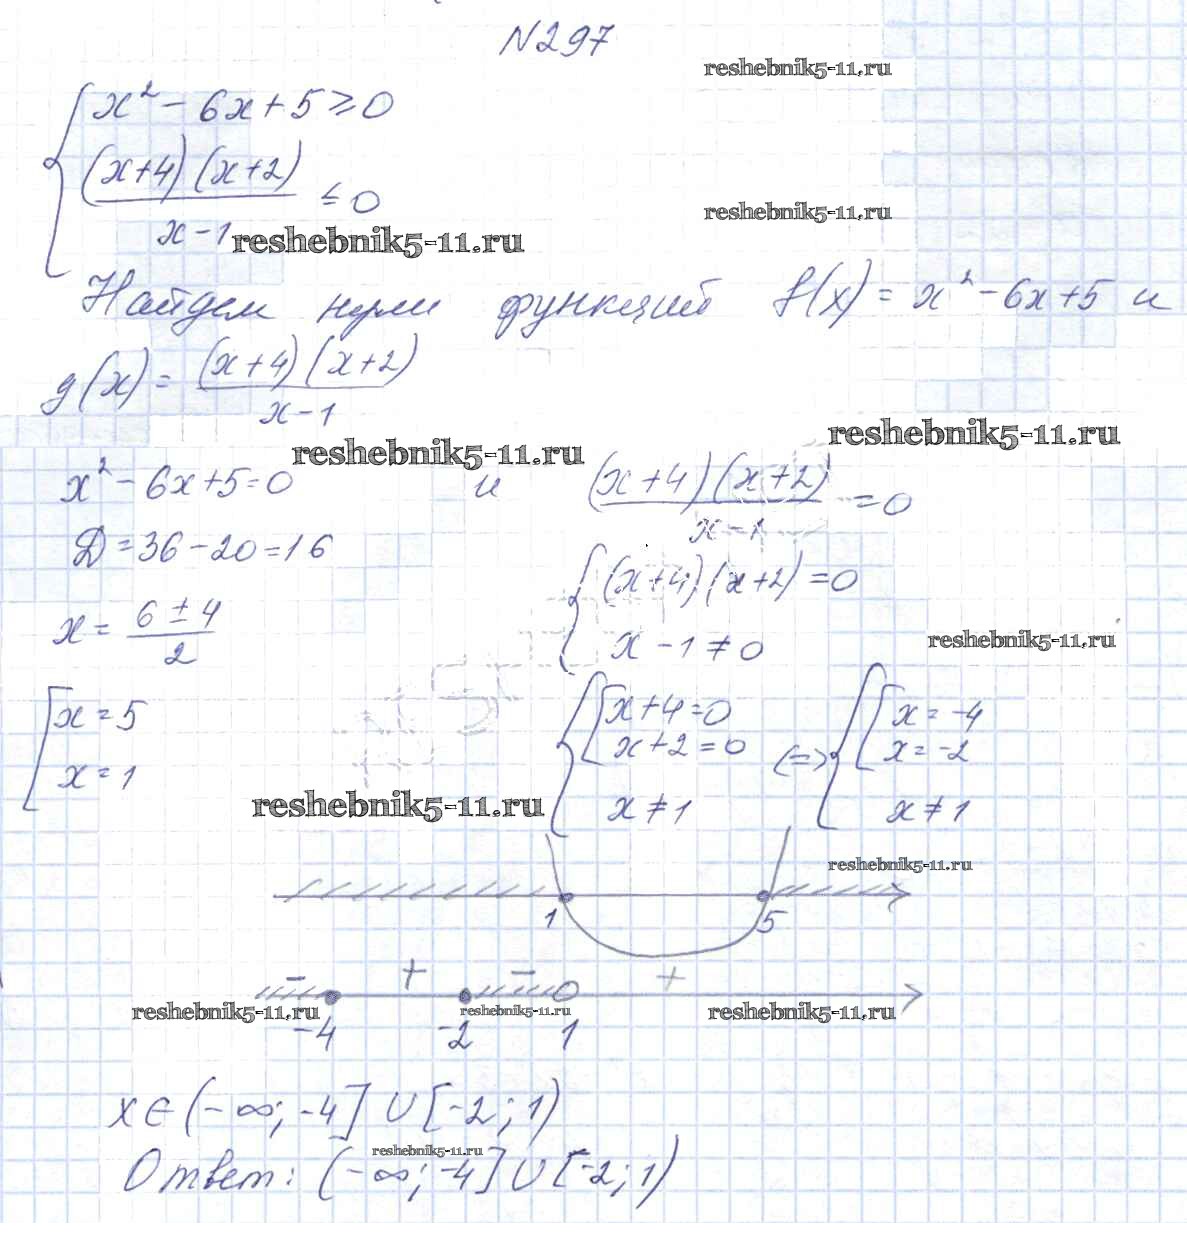 N297
reshebnik5-11.ru
x² - 6x + 5 ≥ 0
(x+4)(x+2)
x - 1
≤ 0
reshebnik5-11.ru
reshebnik5-11.ru
Найдем нули функций f(x) = x² - 6x + 5 и
g(x) = (x+4)(x+2)
x - 1
reshebnik5-11.ru
reshebnik5-11.ru
x² - 6x + 5 = 0 и (x+4)(x+2) = 0
x - 1
D = 36 - 20 = 16
(x+4)(x+2) = 0
x = 6 ± 4
2
x - 1 ≠ 0
reshebnik5-11.ru
x = 5
x = 1
x + 4 = 0
x + 2 = 0
x ≠ 1
(=>
x = -4
x = -2
x ≠ 1
reshebnik5-11.ru
reshebnik5-11.ru
1 5
- + - +
reshebnik5-11.ru
reshebnik5-11.ru
reshebnik5-11.ru
-4 -2 1
x ∈ (-∞; -4] ∪ [-2; 1)
reshebnik5-11.ru
Ответ: (-∞; -4] ∪ [-2; 1)